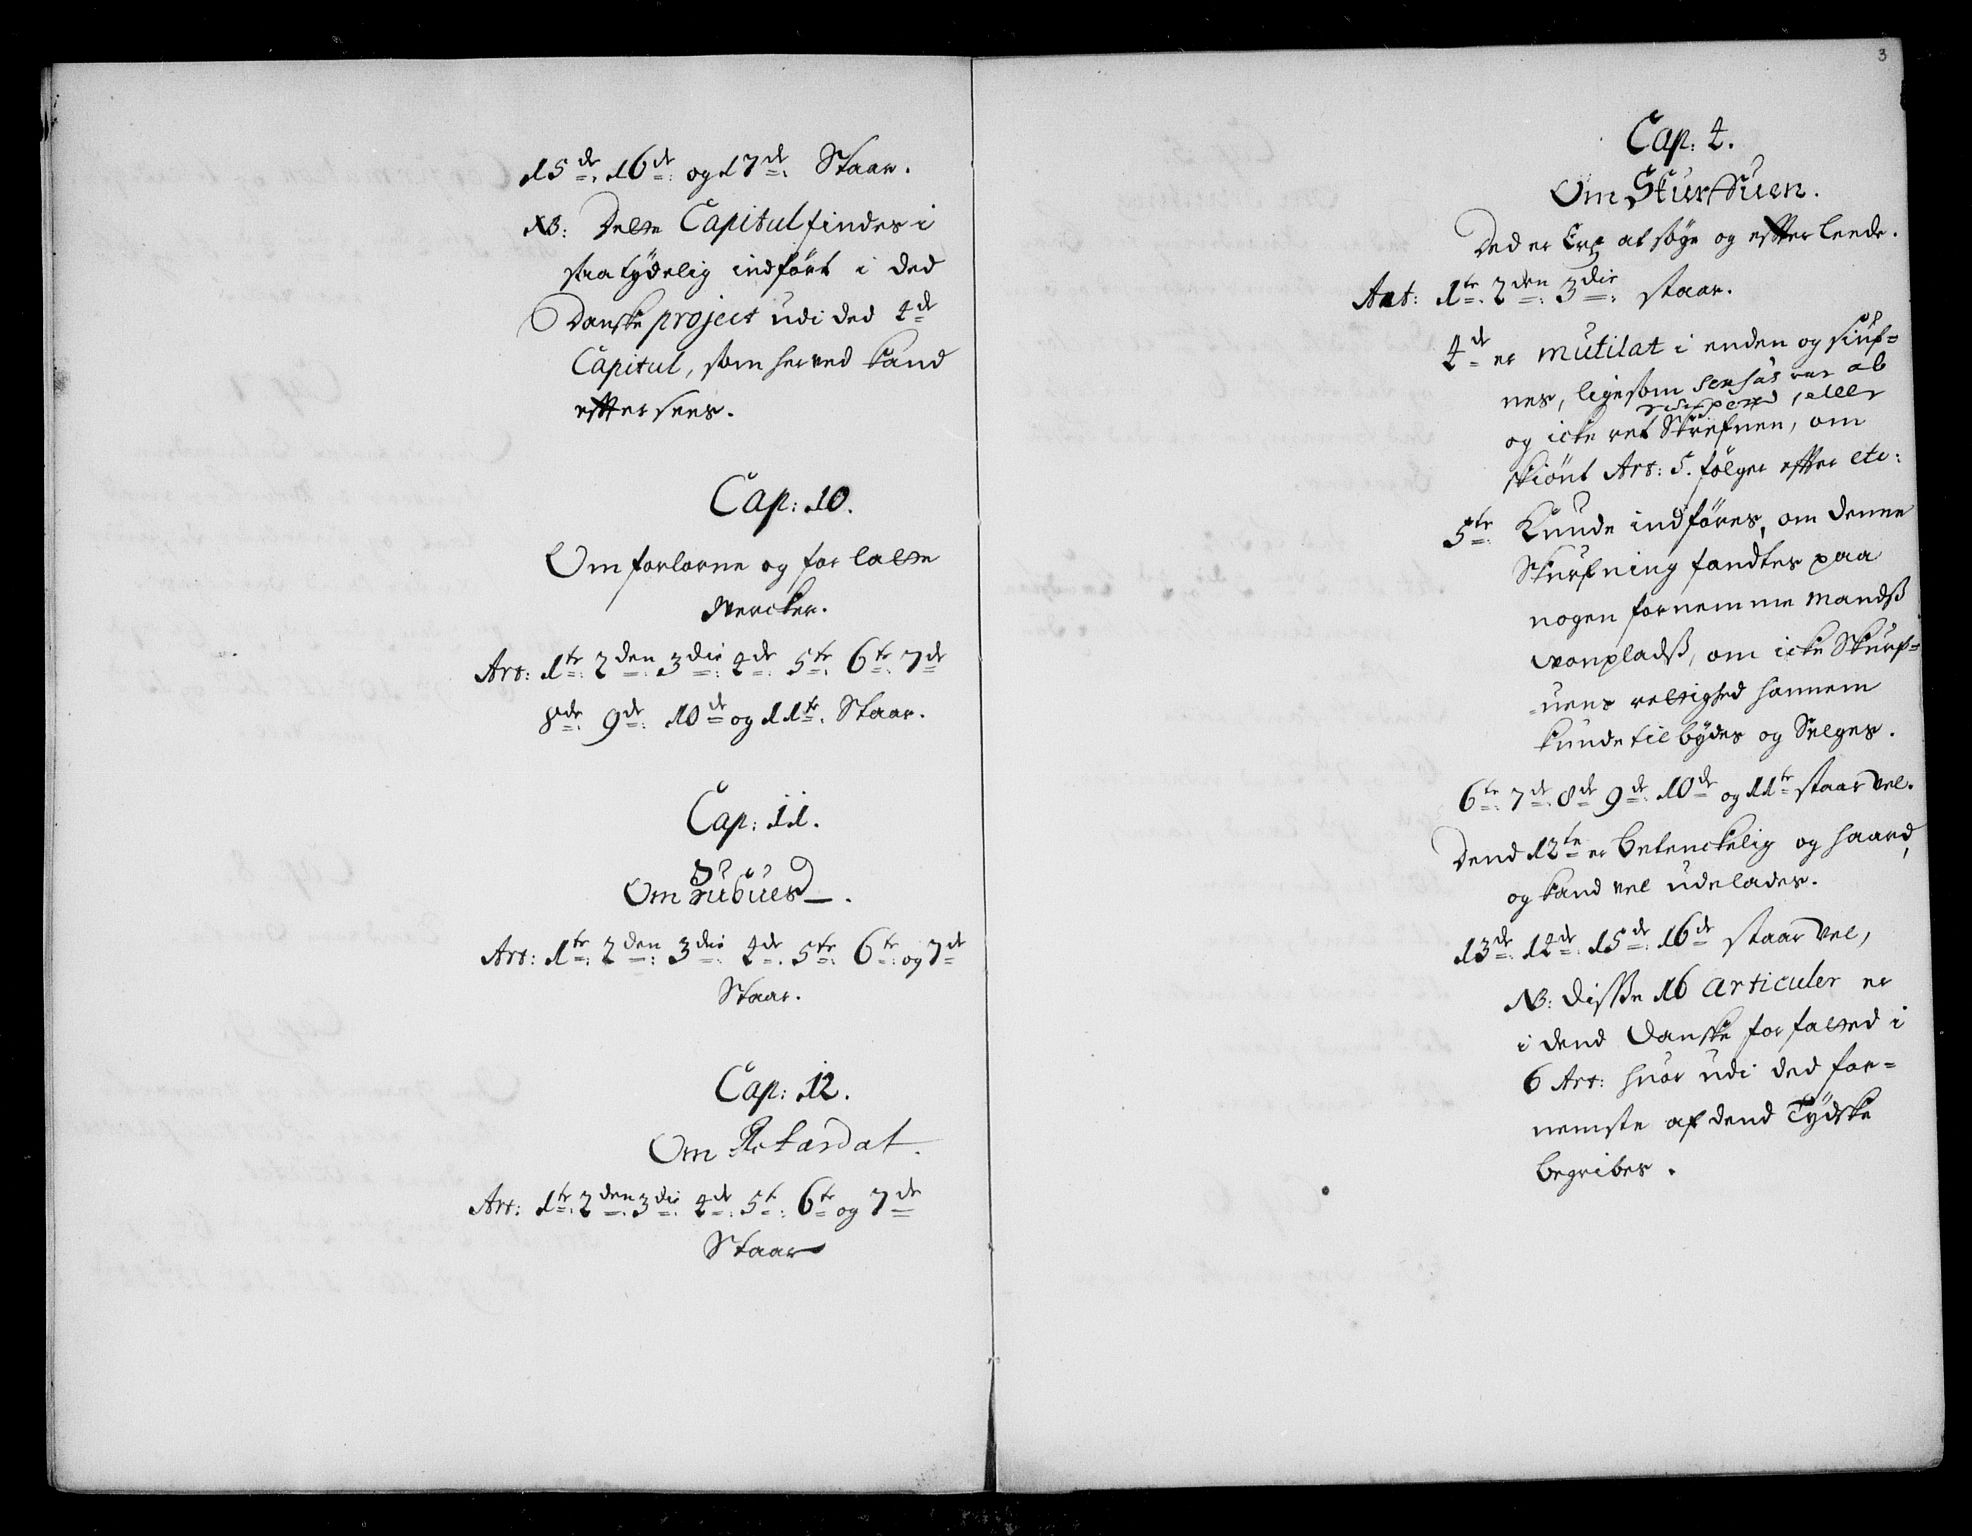 15de. 16de. og 17de. Staar.
NB: Dette Capitul findes i
saa tydelig indført i ded
Danske project udi ded 4de
Capitul, som herved kand
efftersees.
Cap: 10.
Om forlorne og forlatte
Wercker.
Art: 1te. 2den. 3die. 4de. 5te. 6te. 7de
8de. 9de. 10de og 11te. Staar.
Cap: 11.
Om
Art: 1te. 2den. 3die. 4de. 5te. 6te. og 7de
Staar.
Cap: 12.
Om Retardat.
Art: 1te. 2den. 3die. 4de. 5te. 6te og 7de
Staar
3
Cap: 4.
Om
Ded er Ertz at søge og effterleede.
Art: 1te. 2den. 3die. staar.
4de er mutilat i enden og
nes, ligesom sensus var ab
rumperd, eller
og icke ret Skrefven, om
skiønt Art: 5. følger effter etc:
5te. Kunde indføres, om denne
Skurfning fandtes paa
nogen fornemme Mandß
vonpladß, om icke Skurf-
uens rettighed hannem
kunde tilbydes og Selges.
6te. 7de. 8de 9de. 10de og 11te staar vel.
Dend 12te er betenckelig og haard,
og kand vel udelades.
13de. 14de. 15de. 16de staar vel,
NB: disse 16 Articuler er
i dend Danske forfatted i
6 Art: huor udi ded for-
nemste af dend Tydske
begribes.